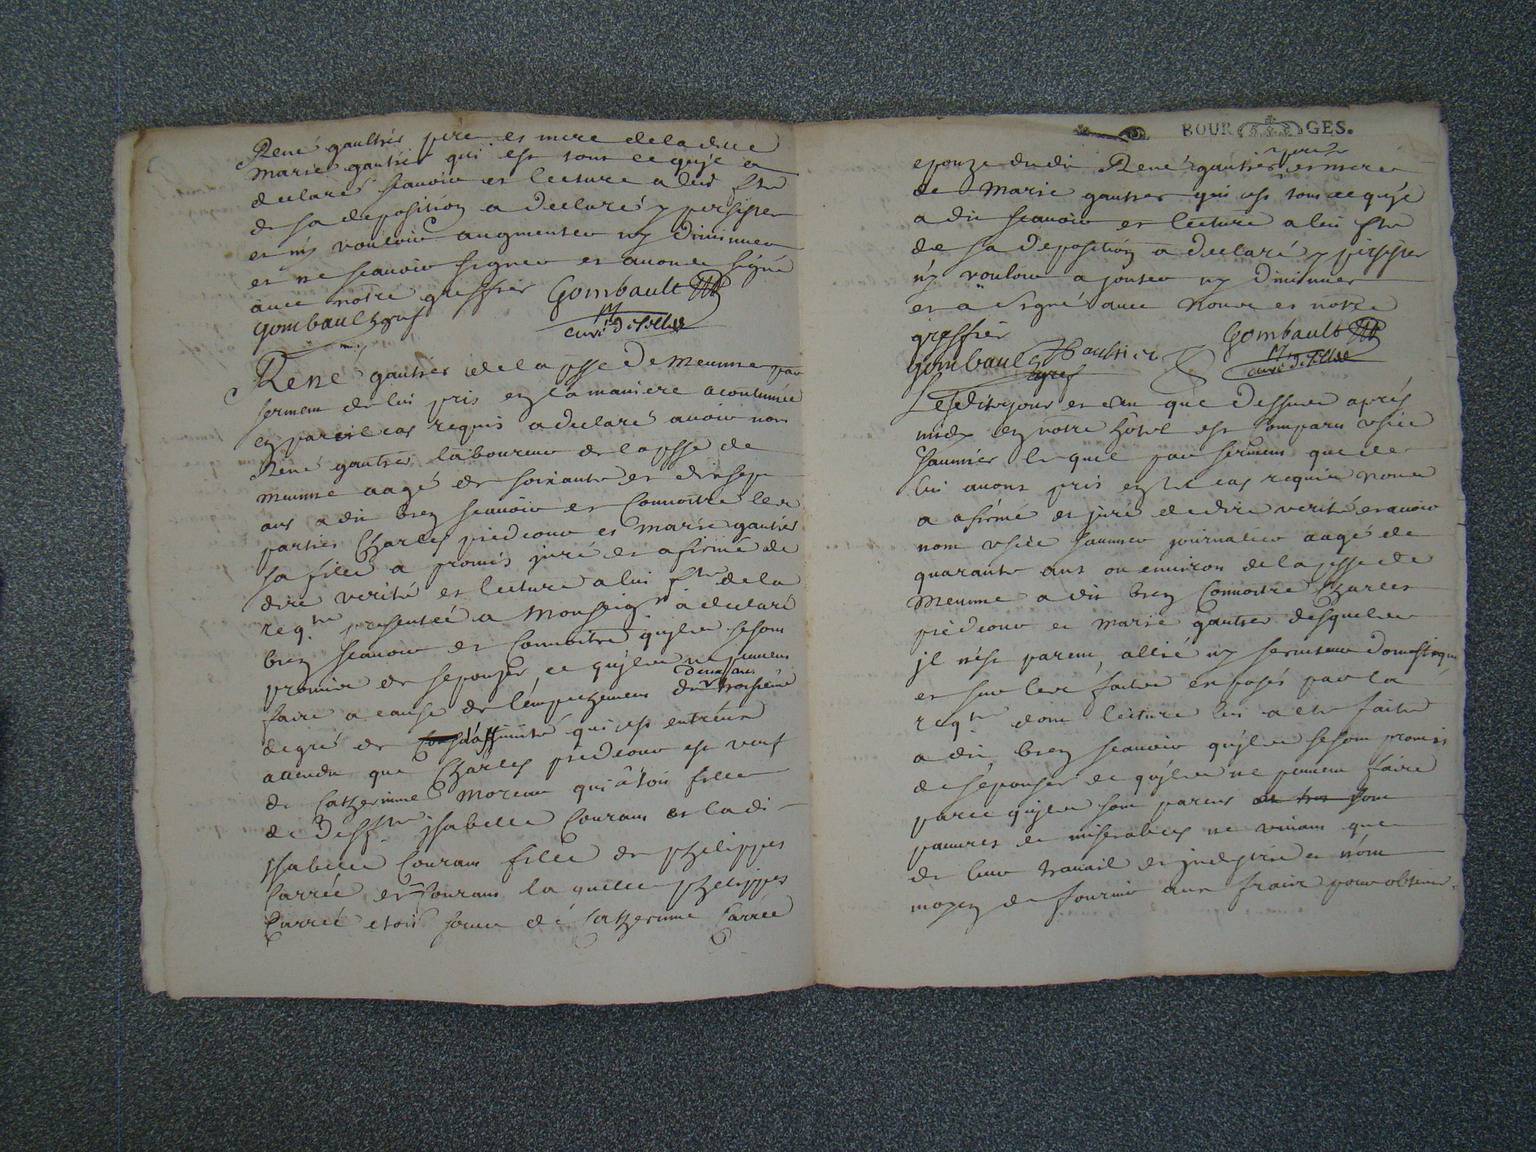 René gaultier pere et mere de la dite
Marie gautier qui est tout ce qu'il a
declaré scavoir et lecture a lui fte
de sa deposition a declaré y persister
et ny vouloir augmenter ny diminuer
et ne scavoir signer et avons signé
avec notre greffier Gombault
gombault gref curé de
René gautier de la psse de Meunne par
serment de lui pris en la maniere acoutumée
en pareil cas requis a declaré avoir nom
René gautier laboureur de la psse de
meunne aagé de soixante et dix sept
ans a dit bien scavoir et connoitre les
parties Charles piedeau et Marie gautier
sa fille a promis juré et afirmé de
dire verité et lecture a lui fte de la
reqte presentée a Monseigr a declaré
bien scavoir et connoitre qu'ils se sont
promis de sepouser, ce qu'ils ne peuvent
faire a cause de l'empechement du troisieme
degré de d'affinité qui est entreux
attendu que Charles piedeau est veuf
de Catherinne Moreau qui étoit fille
de deffte ysabelle Courant et la di
ysabelle Courant fille de philippes
Carrée et Courant la quelle philippes
Carrée etoit soeur de Catherinne Carrée
BOUR GES.
epouze dudit René gautier pere et mere
de Marie gautier qui est tout ce qu'il
a dit scavoir et lecture a lui fte
de sa deposition a declaré y persister
ny vouloir ajouter ny diminuer
et a signé avec nous et notre
greffier Gombault
gombault gref R gaultier curé de
Lesdits jour et an que dessus apres
midy en notre hotel est comparu
Saunier lequel par serment que de
lui avons pris en tel cas requis nous
a afirmé et juré de dire verité et avoir
nom Saunier journalier aagé de
quarante ans ou environ de la psse de
Meunne a dit bien connoitre Charles
piedeau et marie gautier desquels
il n'est parent, allié ny serviteur domestique
et sur les faits exposés par la
reqte dont lecture lui a ete faite
a dit bien scavoir qu'ils se sont promis
de s'epouser et qu'ils ne peuvent faire
parce qu'ils sont parens
pauvres et miserables ne vivans que
de leur travail et industrie et n'ont
moyen de fournir aux fraix pour obtenir